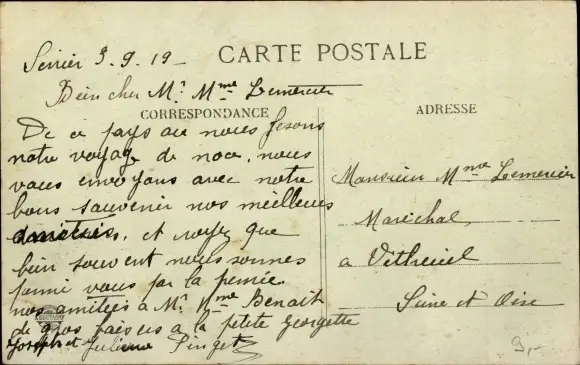 Sevrier 3.9.19-
CARTE POSTALE
Bien cher Mr. Mme Lemercier
CORRESPONDANCE
ADRESSE
De ce pays au nous fesons
notre voyage de noce, nous
vous envoyons avec notre
bons souvenir nos meilleures
et voyez que
bien souvent nous sonnes
parmi vous par la pensée
nos amitiés à Mr. Mme Benoit
de gros baisers a la petite Georgette
Joseph et Julienne Pinget
Monsieur Mme Lemercier
Maréchal
a Vétheuil
Seine et Oise
9,-